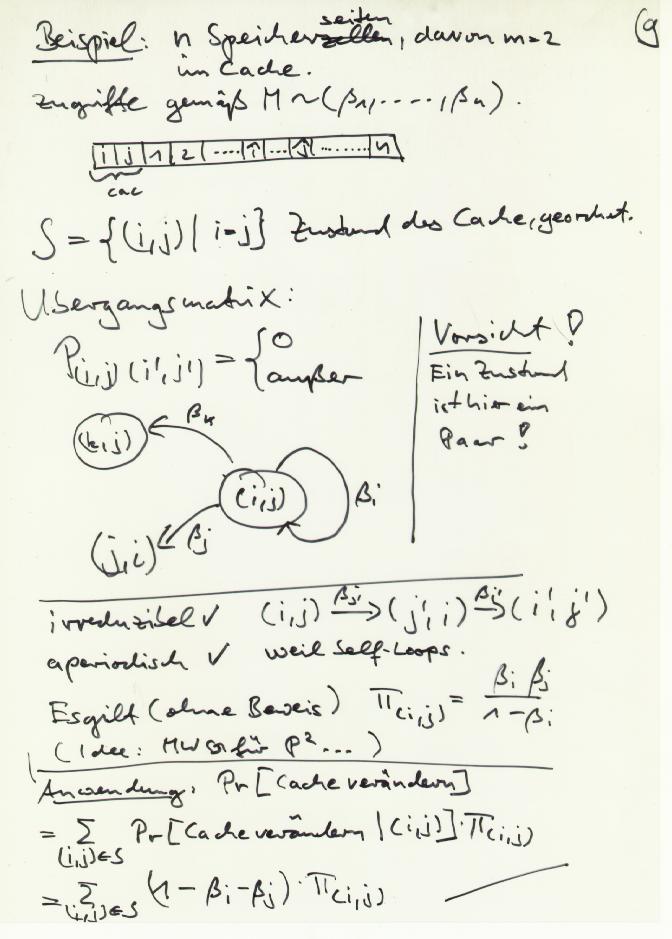 g
Beispiel: n Speicherseiten, davon m=2
im Cache.
Zugriffe gemäß M ~ (β1, ...., βn).
i | j | 1 | 2 | .... | î | ... | ĵ | ........ | n
cac
S = {(i,j) | i=j} Zustand des Cache, geordnet.
Übergangsmatrix:
P(i,j)(i',j') = { 0
außer
Vorsicht!
Ein Zustand
ist hier ein
Paar!
(k,j) βk
(i,j) βi
(j,i) βj
irreduzibel ✓ (i,j) →βj' (j',i) →βi' (i',j')
aperiodisch ✓ weil Self-Loops.
Es gilt (ohne Beweis) π(i,j) = βi βj / 1-βi
(Idee: MW für P² ...)
Anwendung: Pr[Cache verändern]
= Σ(i,j)∈S Pr[Cache verändern | (i,j)]·π(i,j)
= Σ(i,j)∈S (1-βi-βj)·π(i,j)